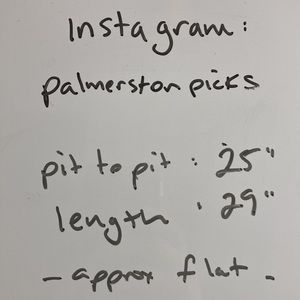 Instagram:
palmerston picks
pit to pit : 25"
length : 29"
- approx flat -